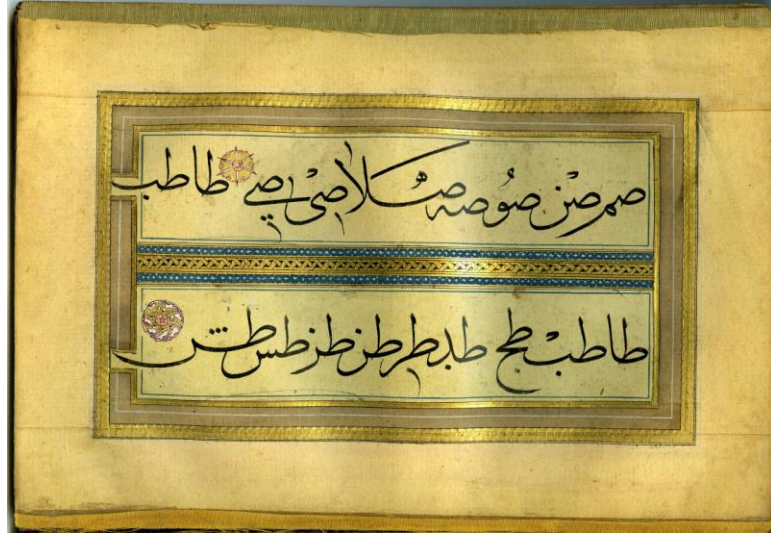 صم صن صو صه صلا صى صے طا طب
طا طب طح طد طر طن طر طس طش